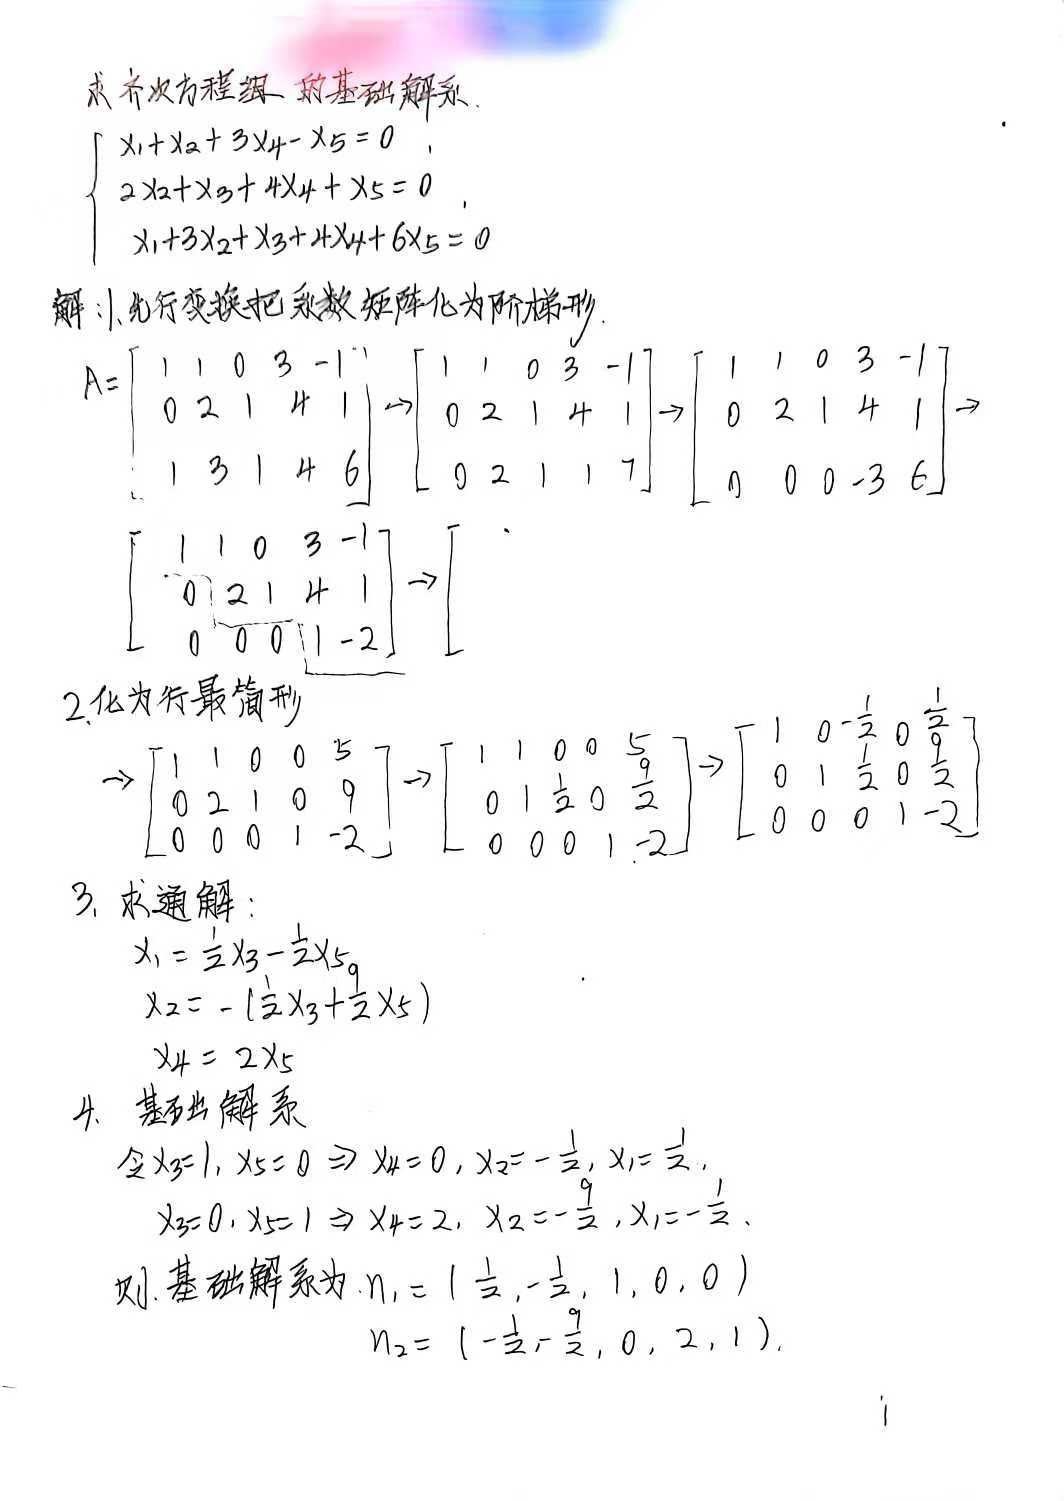 求齐次方程组的基础解系.
x₁+x₂+3x₄-x₅=0,
2x₂+x₃+4x₄+x₅=0,
x₁+3x₂+x₃+4x₄+6x₅=0
解:1.先行变换把系数矩阵化为阶梯形.
A=[1 1 0 3 -1; 0 2 1 4 1; 1 3 1 4 6]→[1 1 0 3 -1; 0 2 1 4 1; 0 2 1 1 7]→[1 1 0 3 -1; 0 2 1 4 1; 0 0 0 -3 6]→
[1 1 0 3 -1; 0 2 1 4 1; 0 0 0 1 -2]→[
2.化为行最简形
→[1 1 0 0 5; 0 2 1 0 9; 0 0 0 1 -2]→[1 1 0 0 5; 0 1 1/2 0 9/2; 0 0 0 1 -2]→[1 0 -1/2 0 1/2; 0 1 1/2 0 9/2; 0 0 0 1 -2]
3.求通解:
x₁=1/2x₃-1/2x₅
x₂=-(1/2x₃+9/2x₅)
x₄=2x₅
4.基础解系
令x₃=1,x₅=0⇒x₄=0,x₂=-1/2,x₁=1/2.
x₃=0,x₅=1⇒x₄=2,x₂=-9/2,x₁=-1/2.
则.基础解系为.n₁=(1/2,-1/2,1,0,0)
n₂=(-1/2,-9/2,0,2,1).
1